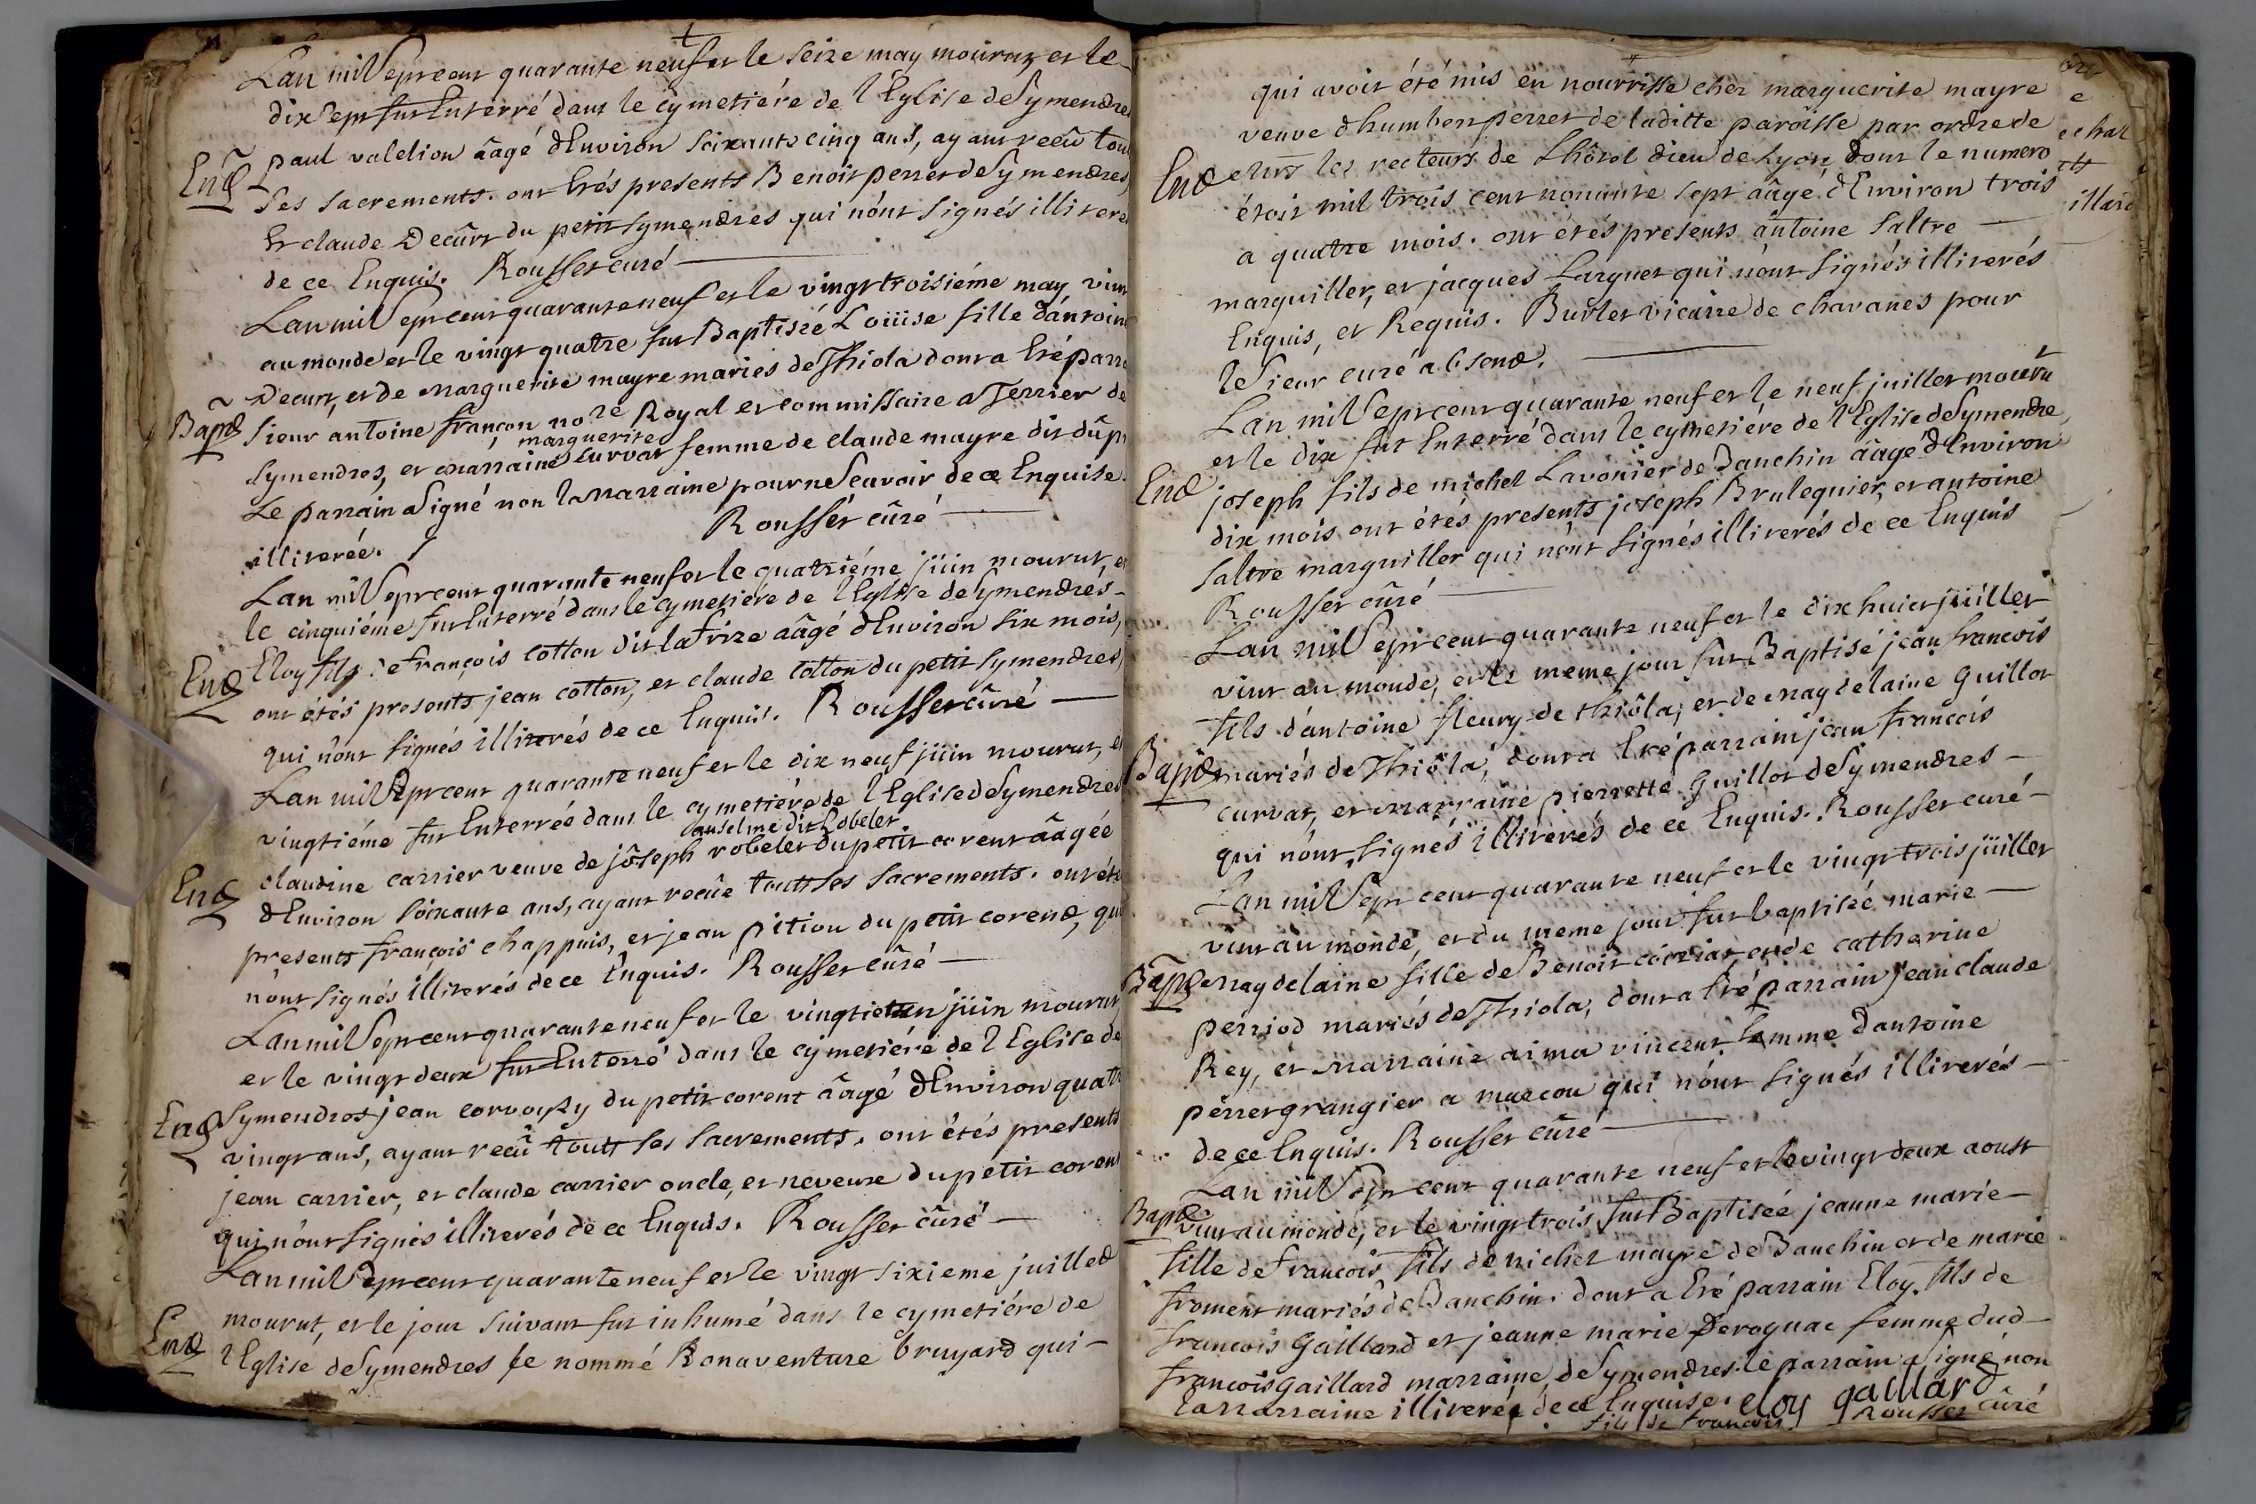 Lan mil Sept cent quarante neuf et le seize may mourut, et le
dix Sept fut Enterré dans le cymetiére de l'Eglise de Symendres
Ent
paul valelion aâgé d'Environ soixante cinq ans, ayant recû tous
Ses sacrements. ont Etés presents Benoit perret de Symendres,
Et claude Decûrt du petit symendres qui n'ont signés illiteré
de ce Enquis. Rousset curé
Lan mil Sept cent quarante neuf et le vingt troisiéme may vint
au monde et le vingt quatre fut Baptisée Loüise fille d'antoine
Decurt, et de Marguerite mayre mariés de Thiola dont a Eté parra
Bapt
Sieur antoine françon no.re Royal et commissaire a Terrier de
marguerite
symendres, et marraine curvat femme de claude mayre dit dûp
Le parrain a Signé non la Marraine pour ne Scavoir de ce Enquise
illiterée. Roussét cûré
Lan mil Sept cent quarante neuf et le quatriéme jüin mourut, et
le cinquiéme fut Enterré dans le cymetiére de l'Eglise de Symendres
Ent
Eloy fils de françois cotton dit lafrize aâgé d'Environ six mois,
ont étés presents jean cotton, et claude cotton du petit symendres,
qui n'ont signés illiterés de ce Enquis. Rousset cûré
Lan mil Sept cent quarante neuf et le dix neuf jüin mourut, et
vingtiéme fut Enterrée dans le cymetiére de l'Eglise de Symendres
anselme dit Robelet
Ent
claudine carrier veuve de jôseph robelet du petit corent aâgée
d'Environ soixante ans, ayant recûe touts ses sacrements. ont étés
presents françois chappuis, et jean pition du petit corent, qui
n'ont signés illiterés de ce Enquis. Rousset cûré
Lan mil Sept cent quarante neuf et le vingtietun jüin mourut,
et le vingt deux fut Enterré dans le cymetiére de l'Eglise de
Ent
symendres jean corvoysy du petit corent aâgé d'Environ quatre
vingt ans, ayant recû touts ses sacrements. ont étés presents
jean carrier, et claude carrier oncle, et neveux du petit corent
qui n'ont signés illiterés de ce Enquis. Rousset cûré
Lan mil Sept cent quarante neuf et le vingt sixieme juillet
mourut, et le jour suivant fut inhumé dans le cymetiére de
Ent
l'Eglise de Symendres le nommé Bonaventure bruyard qui
qui avoit été mis en nourrisse chez marguerite mayre
veuve d'humbert perret de laditte paroisse par ordre de
Ent
les recteurs de Lhotel dieu de Lyon dont le numero
étoit mil trois cent nonante sept aâgé d'Environ trois
a quatre mois. ont étés presents antoine saltre
marguiller, et jacques Larguet qui n'ont signés illiterés
Enquis, et Requis. Burlet vicaire de chavanes pour
le Sieur curé absent.
Lan mil Sept cent quarante neuf et le neuf juillet mourut
et le dix fut Enterré dans le cymetiére de l'Eglise de Symendre
Ent
joseph fils de michel Lavonier de Banchin aâgé d'Environ
dix mois ont étés presents joseph Brulequier, et antoine
saltre marguiller qui n'ont signés illiterés de ce Enquis
Roussét cûré
Lan mil Sept cent quarante neuf et le dix huict jüillet
vint au monde, et le meme jour fut Baptisé jean francois
fils d'antoine fleury de thiôla, et de Magdelaine Guillot
Bapt
mariés de Thiôla, dont a Eté parrain jean francois
curvat, et Marraine pierrette Guillot de Symendres
qui n'ont signés illiterés de ce Enquis. Rousset curé
Lan mil Sept cent quarante neuf et le vingt trois jüillet
vint au monde, et du meme jour fut baptisée marie
Bapt
Magdelaine fille de Benoit cocriat, et de catherine
perriod mariés de Thiola, dont a Eté parrain jean claude
Rey, et Marraine aima vincent femme d'antoine
perret grangier a marcou qui n'ont signés illiterés
de ce Enquis. Rousset cûré
Lan mil Sept cent quarante neuf et le vingt deux aoust
Bapt
vint au monde, et le vingt trois fut Baptisée jeanne marie
fille de francois fils de michel mayre de Banchin et de marie
froment mariés de Banchin. dont a Eté parrain Eloy fils de
francois Gaillard et jeanne marie Perognac femme dud
francois Gaillard marraine de Symendres. le parrain a signé non
la Marraine illiterée de ce Enquise. eloy gaillard
fils de francois Rousset cûré